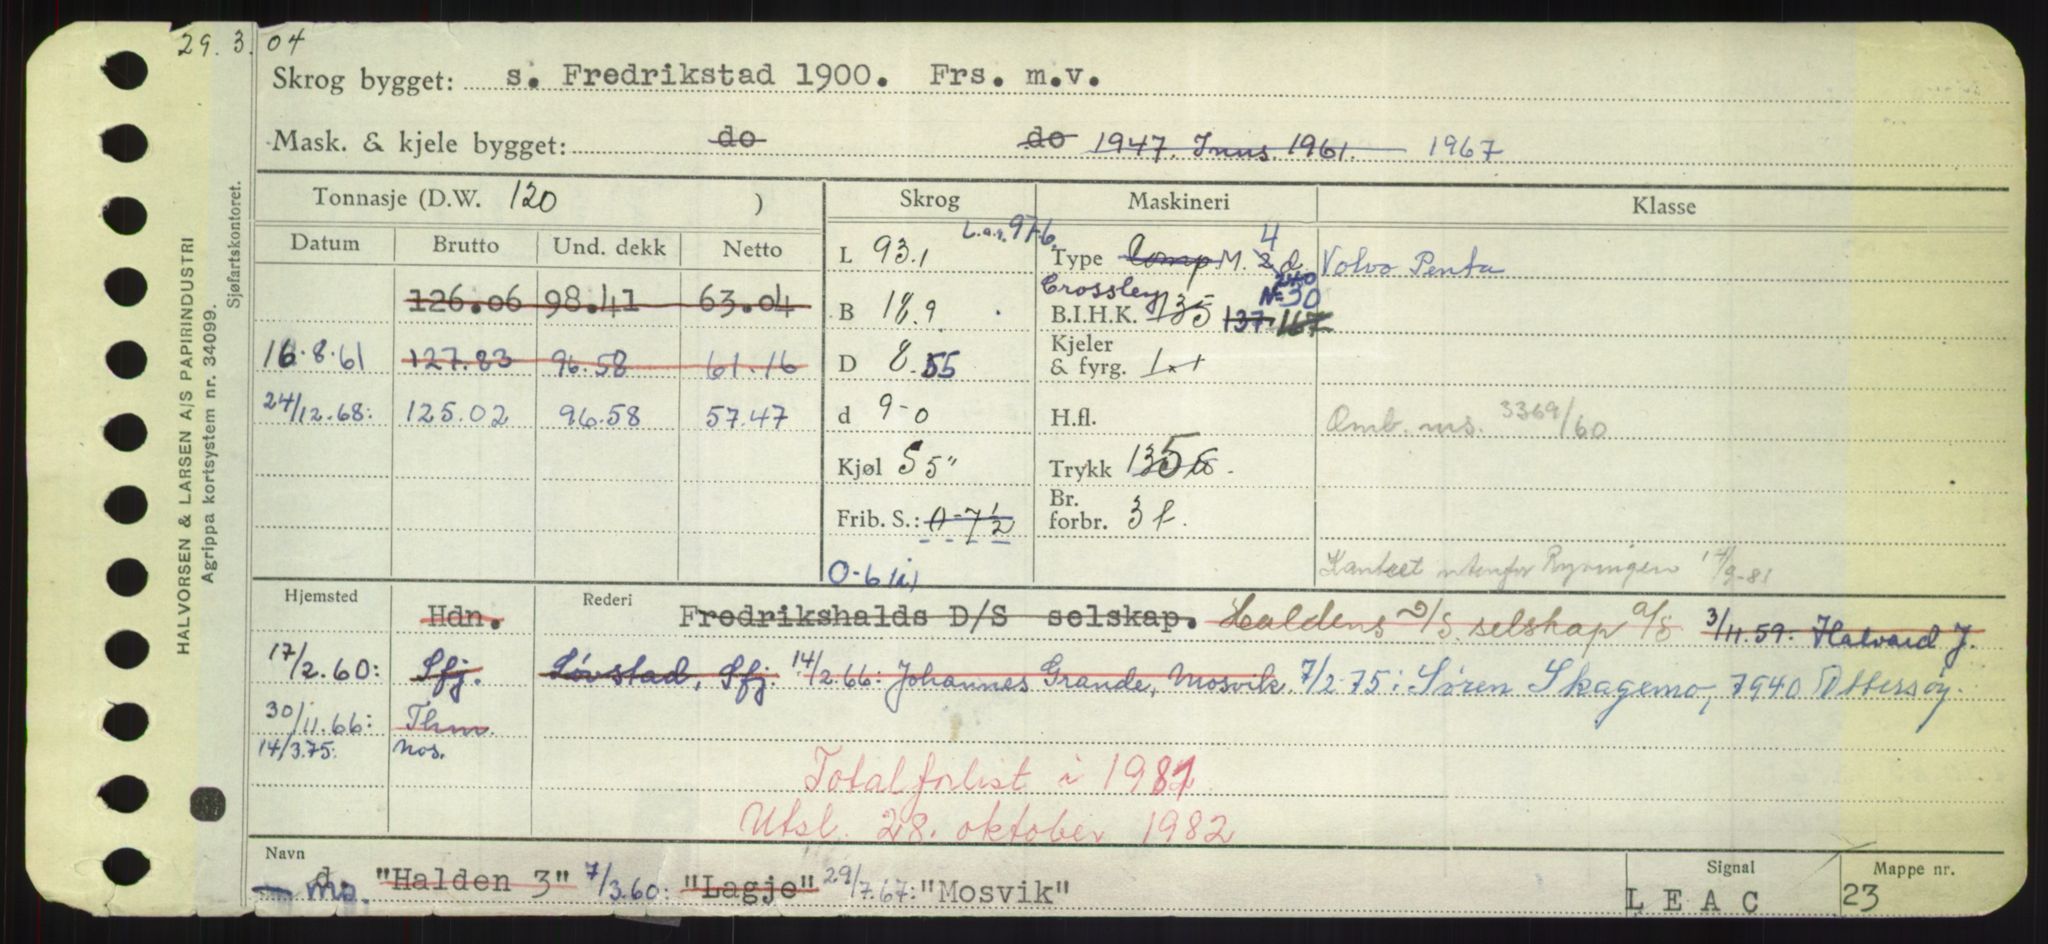 29.3.04
Skrog bygget: s. Fredrikstad 1900. Frs. m.v.
Mask. & kjele bygget: do do 1947. Inns. 1961. 1967
Tonnasje (D.W. 120 ) Skrog Maskineri Klasse
Datum Brutto Und. dekk Netto
126.06 98.41 63.04
16.8.61 127.83 96.58 61.16
24/12.68: 125.02 96.58 57.47
L 93.1 L.o.a. 97.6
B 18.9
D 8.55
d 9-0
Kjøl S 5"
Frib. S.: 0-7½
0-6
Type Comp M. 2 4 d. Volvo Penta
Crossley 240
N=30
B.I.H.K. 135 137 167
Kjeler & fyrg. 1.1
H.fl.
Omb. ms. 3369/60
Trykk 135
Br. forbr. 3 t.
Kantret utenfor Ryningen 14/9-81
Hjemsted Rederi
Hdn. Fredrikshalds D/S selskap. Haldens D/S. selskap A/S 3/11.59: Halvard J.
17/2.60: Sfj. Løvstad, Sfj. 14/2.66: Johannes Grande, Mosvik. 7/2-75: Søren Skagemo, 7940 Ottersøy.
30/11.66: Thm.
14/3.75: Nos.
Totalforlist i 1981
Utsl. 28. oktober 1982
Navn Signal Mappe nr.
d. ms. "Halden 3" 7/3.60: "Lagje" 29/7.67: "Mosvik" L E A C 23
HALVORSEN & LARSEN A/S PAPIRINDUSTRI
Agrippa kortsystem nr. 34099.
Sjøfartskontoret.